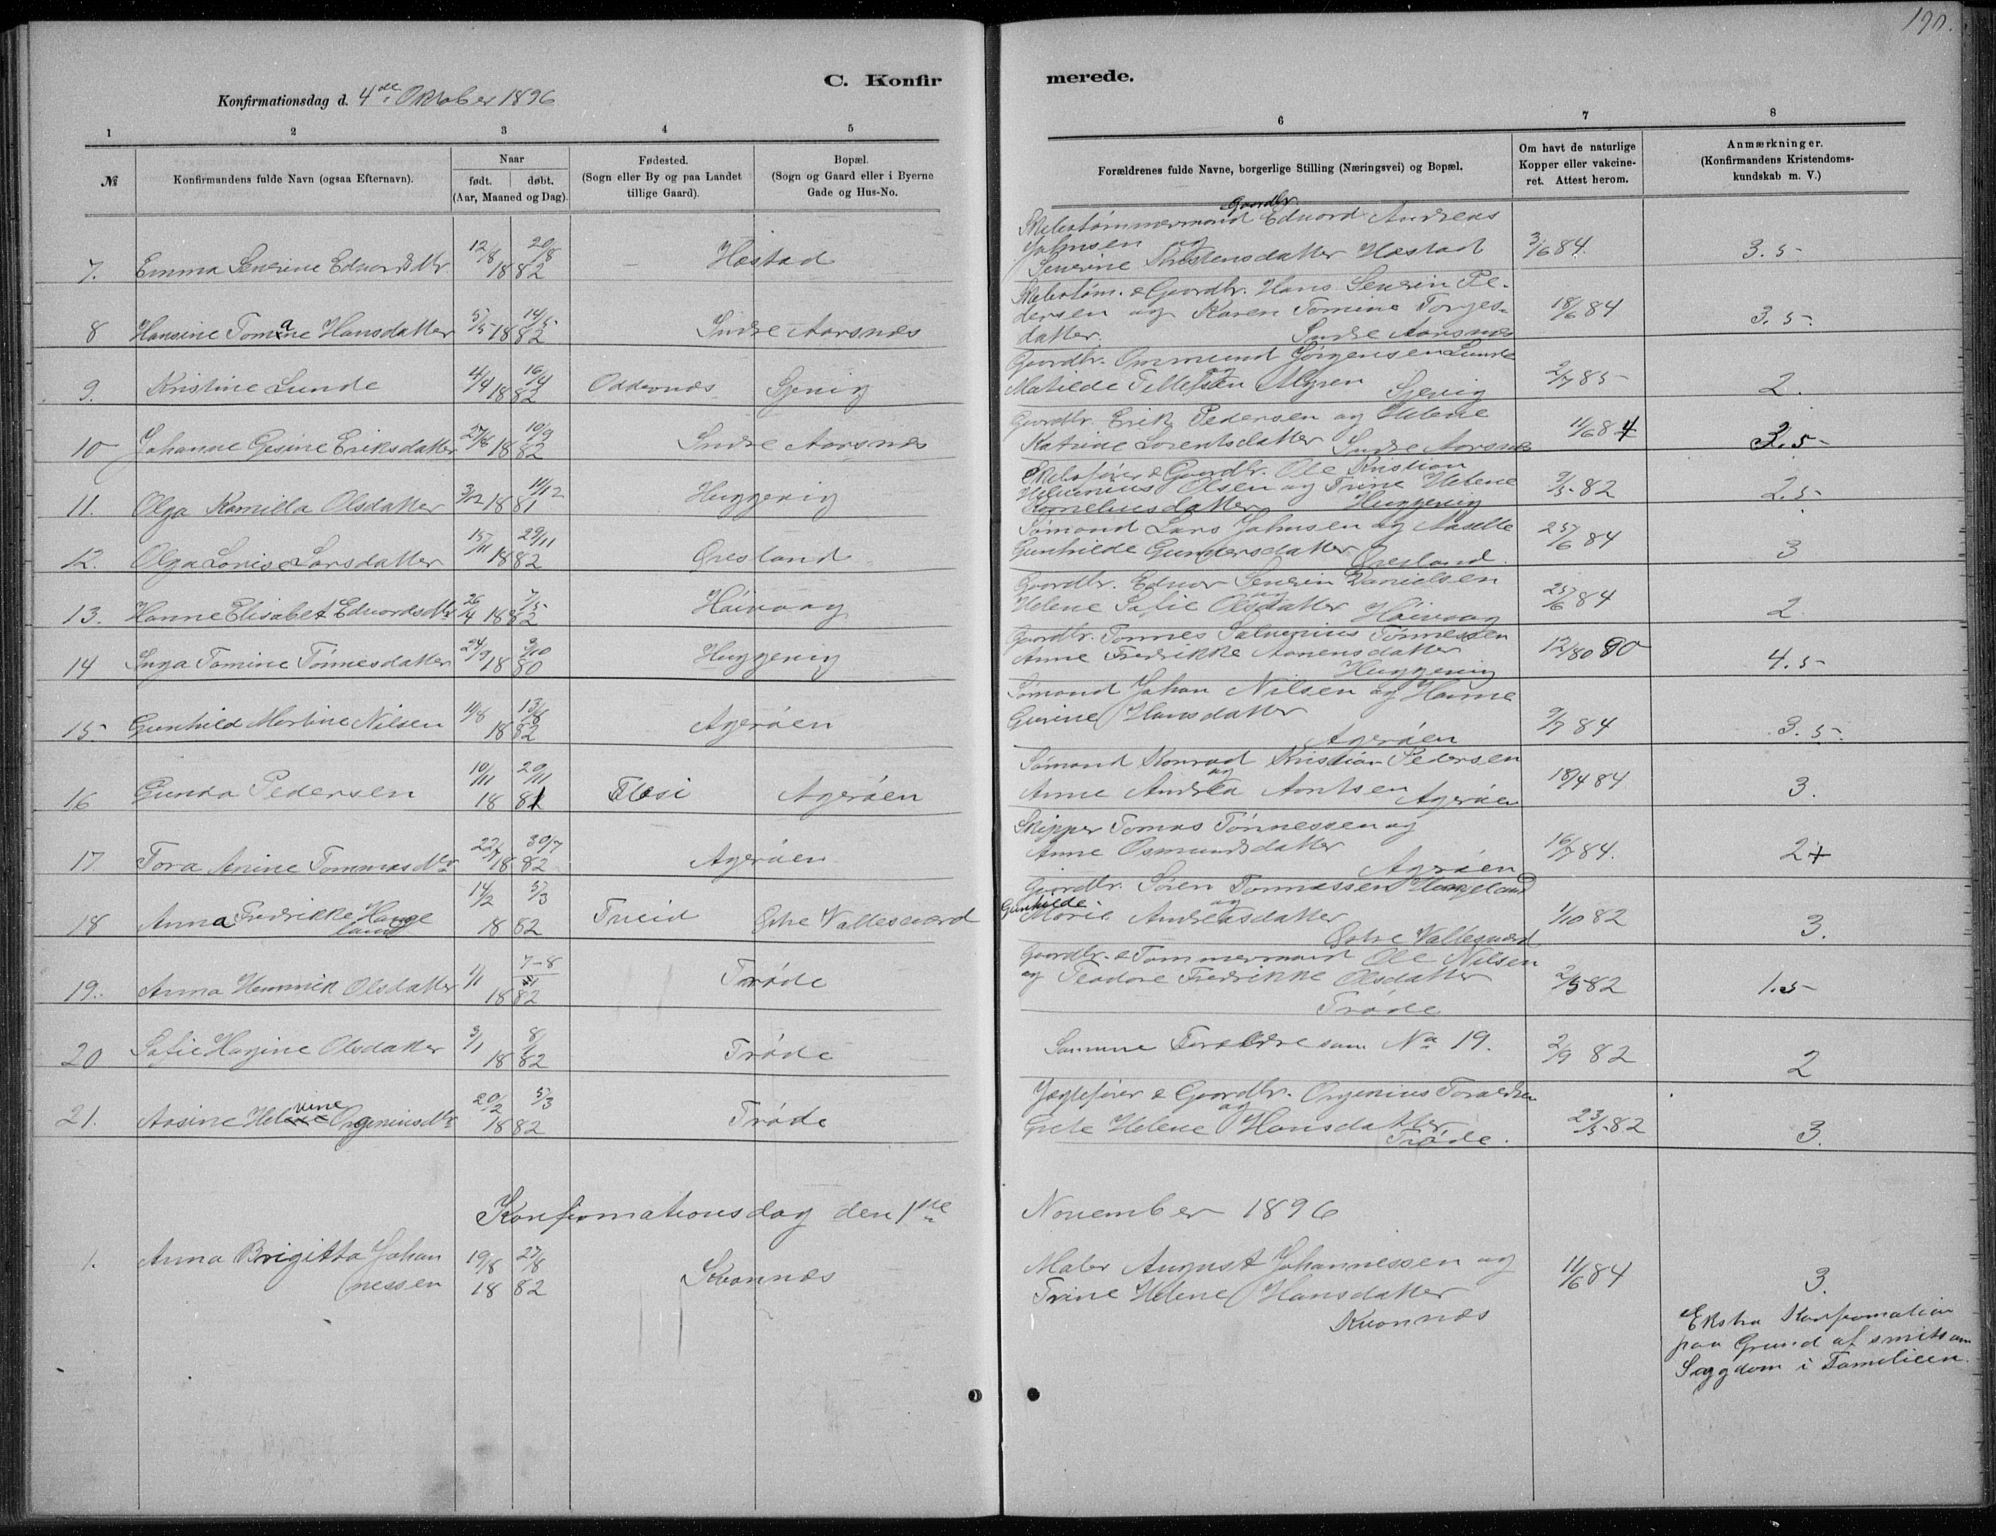 190.
C. Konfir
merede.
Konfirmationsdag d. 4de Oktober 1896
1 2 3 4 5 6 7 8
№
Konfirmandens fulde Navn (ogsaa Efternavn).
Naar
født. døbt.
(Aar, Maaned og Dag).
Fødested.
(Sogn eller By og paa Landet
tillige Gaard).
Bopæl.
(Sogn og Gaard eller i Byerne
Gade og Hus-No.
Forældrenes fulde Navne, borgerlige Stilling (Næringsvei) og Bopæl.
Om havt de naturlige
Kopper eller vakcine-
ret. Attest herom.
Anmærkninger.
(Konfirmandens Kristendoms-
kundskab m. V.)
7. Emma Severine Edvardsdtr 12/8 20/8 1882 Hæstad
Gaardbr.
Skibstømmermand Edvard Andreas
Johnsen og
Severine Hæstad 3/6 84. 3.5
8 Hansine Tomane Hansdatter 5/5 14/5 1882 Indre Aarsnæs
Skibstøm. & Gaardbr. Hans Severin Pe-
dersen og Karen Tomine Torges-
datter. Indre Aarsnæs 18/6 84 3.5
9. Kristine Lunde 4/4 16/4 1882 Oddernæs Gjevig
Gaardbr. Ommund Jørgensen Lunde
og
Matilde Tellefsen Myren Gjevig 2/7 85 2.
10 Johanne Gesine Eriksdatter 27/8 10/9 1882 Indre Aarsnæs
Gaardbr. Erik Pedersen og Helene
Katrine Lorentsdatter Indre Aarsnæs 11/6 84 3.5
11. Olga Kamilla Olsdatter 3/12 11/12 1881 Huggevig
Skibsfører & Gaardbr. Ole Kristian
Helvenius Olsen og Trine Helene
Korneliusdatter Huggevig 9/5 82 2.5
12. Olga Lovise Larsdatter 15/11 29/11 1882 Øresland
Sømand Lars Johnsen og Aaselle
Gunhilde Gundersdatter Øresland. 25/6 84 3
13. Hanne Elisabet Edvardsdtr 26/4 7/5 1882 Høivaag
Gaardbr. Edvar Severin Danielsen
og
Helene Sofie Olsdatter Høivaag 25/6 84 2.
14 Inga Tomine Tønnesdatter 24/9 9/10 1880 Huggevig
Gaardbr. Tønnes Salvenius Tønnessen
Anne Fredrikke Aanensdatter
Huggevig 12/80 90 4.5
15 Gunhild Martine Nilsen 11/8 13/8 1882 Agerøen
Sømand Johan Nilsen og Hanne
Gurine Hansdatter
Agerøen 9/7 84 3.5
16 Gunda Pedersen 10/11 20/11 1881 Flosi Agerøen
Sømand Konrad Kristian Pedersen
og
Anne Andrea Aantsen Agerøen 18/4 84 3.
17. Tora Anine Tommasdtr 22/7 30/7 1882 Agerøen
Skipper Tomas Tønnessen og
Anne Osmundsdatter
Agerøen 16/7 84. 2+
18 Anna Fredrikke Hauge
land 14/2 5/3 1882 Treid Østre Vallesværd
Gaardbr. Søren Tønnessen Haugeland
Gunhilde og
Marie Andreasdatter
Østre Vallesværd 1/10 82 3.
19. Anna Henrik Olsdatter 1/1 7-8/1 1882 Trøde
Gaardbr. & Tømmermand Ole Nilsen
og Teadore Fredrikke Olsdatter
Trøde 2/9 82 1.5
20 Sofie Hagine Olsdatter 3/1 8/1 1882 Trøde
Samme Forældre som No 19. 2/9 82 2
21. Aasine Helevine Orgeniusdtr 20/2 5/3 1882 Trøde
Jægtefører & Gaardbr. Orgenius Toraldsen
og
Grete Helene Hansdatter
Trøde. 23/5 82 3.
Konfirmationsdag den 1ste November 1896
1. Anna Brigitta Johan
nessen 19/8 27/8 1882 Kvannæs
Maler August Johannessen og
Trine Helene Hansdatter
Kvannæs 11/6 84 3.
Ekstra Konfirmation
paa Grund af smitsom
Sygdom i Familieen.